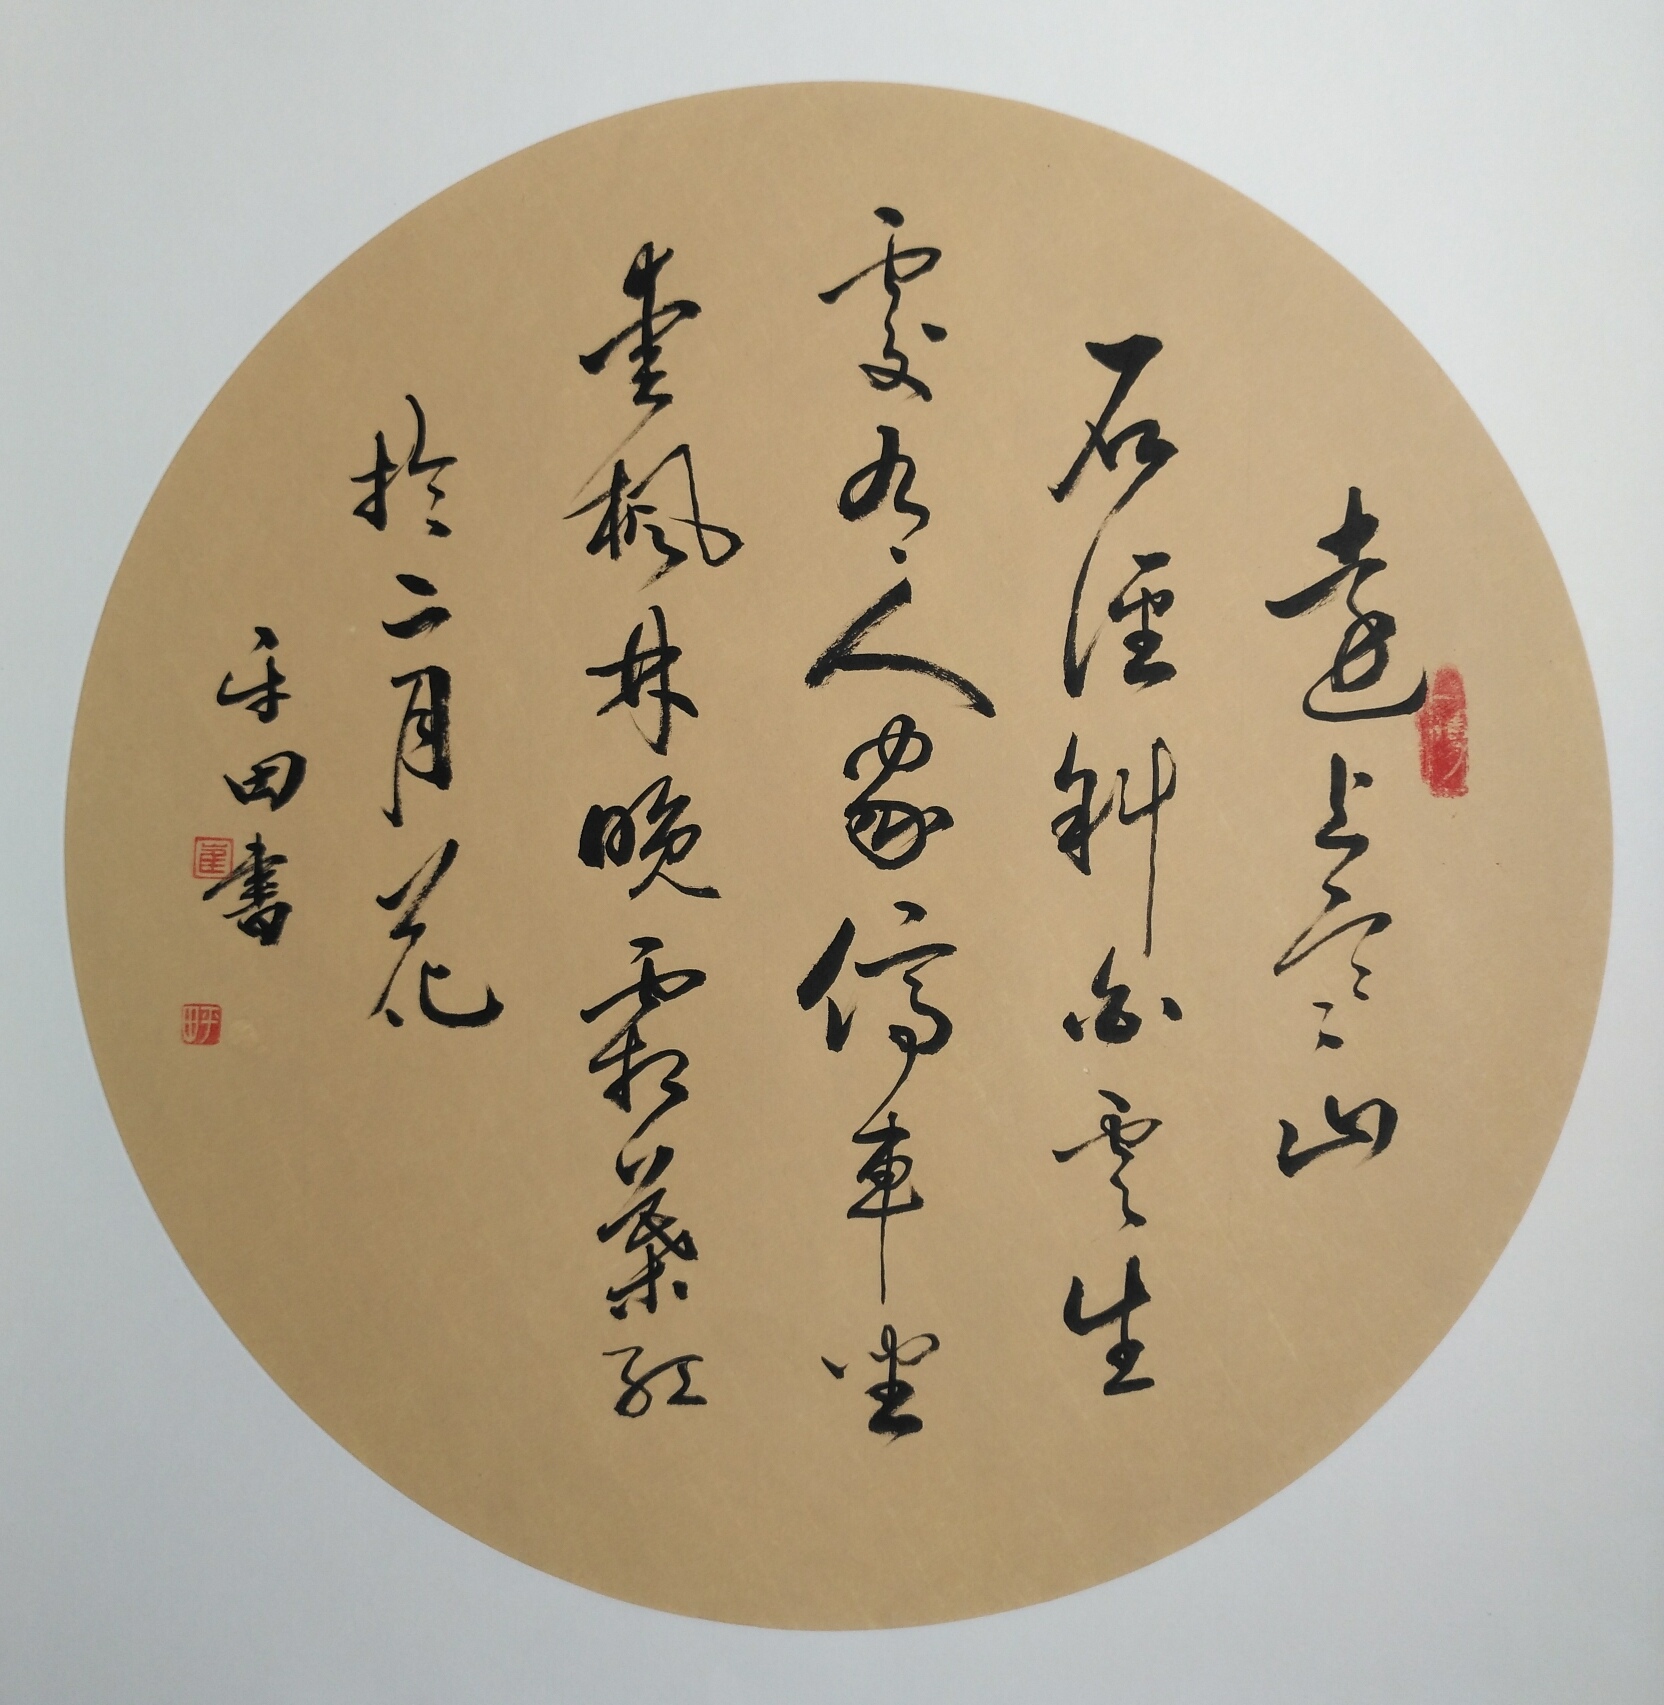 遠上寒山
石徑斜白雲生
處有人家停車坐
愛楓林晚霜葉紅
於二月花
平田書
崔